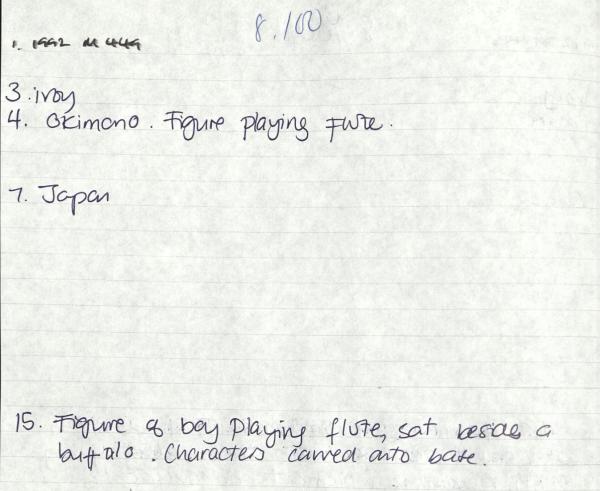 8.100
1. 1992 M 449
3. ivoy
4. Okimono. Figure playing Flute.
7. Japan
15. Figure of boy Playing flute, sat beside a
buffalo. Characters carved onto base.